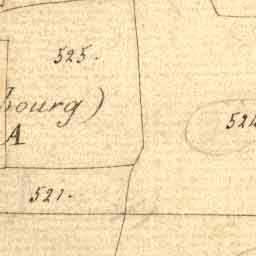 525.
bourg)
A
521.